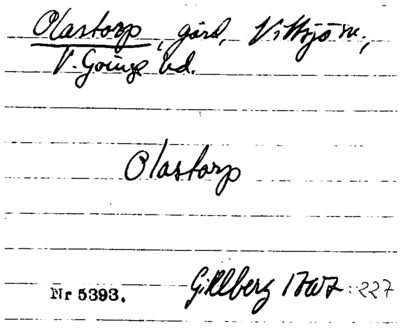 Olastorp, gård, Vittsjö sn.,
V. Göinge hd.
Olastorp
Nr 5393. Gillberg 1767 :227